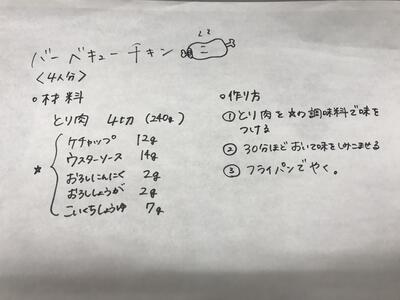 バーベキューチキン
〈4人分〉
○材料
とり肉 4切 (240g)
☆
ケチャップ 12g
ウスターソース 14g
おろしにんにく 2g
おろししょうが 2g
こいくちしょうゆ 7g
○作り方
① とり肉を☆の調味料で味を
つける
② 30分ほどおいて味をしみこませる
③ フライパンでやく。